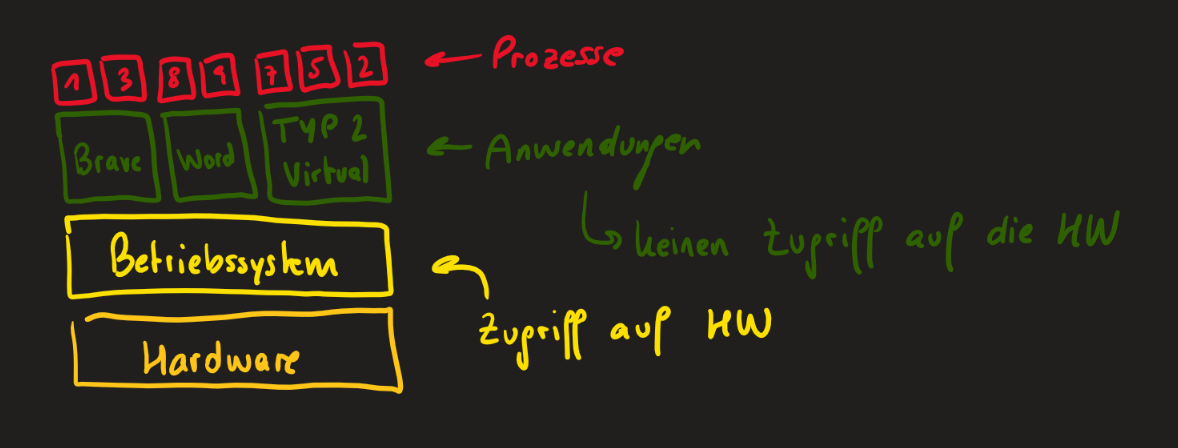 1 3 8 9 7 5 2
← Prozesse
Brave
Word
TYP 2
Virtual
← Anwendungen
↳ keinen Zugriff auf die HW
Betriebssystem
Zugriff auf HW
Hardware